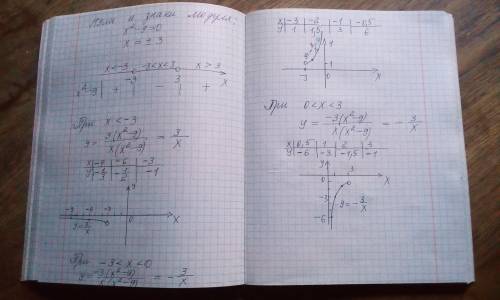 Нули и знаки модуля:
x²-9=0
x = ± 3
x<-3 -3<x<3 x>3
-3 3 x
x²-9 | + | - | +
При x < -3
y = 3(x²-9) / x(x²-9) = 3/x
-9 -6 -3
y = 3/x
y
0 x
При -3<x<0
y = -3(x²-9) / x(x²-9) = - 3/x
x | -3 | -2 | -1 | -0,5
y | 1 | 1,5 | 3 | 6
y
1
-3 0 x
При 0<x<3
y = -3(x²-9) / x(x²-9) = - 3/x
x | 0,5 | 1 | 2 | 3
y | -6 | -3 | -1,5 | -1
y
0 3 x
-3
y = - 3/x
-6